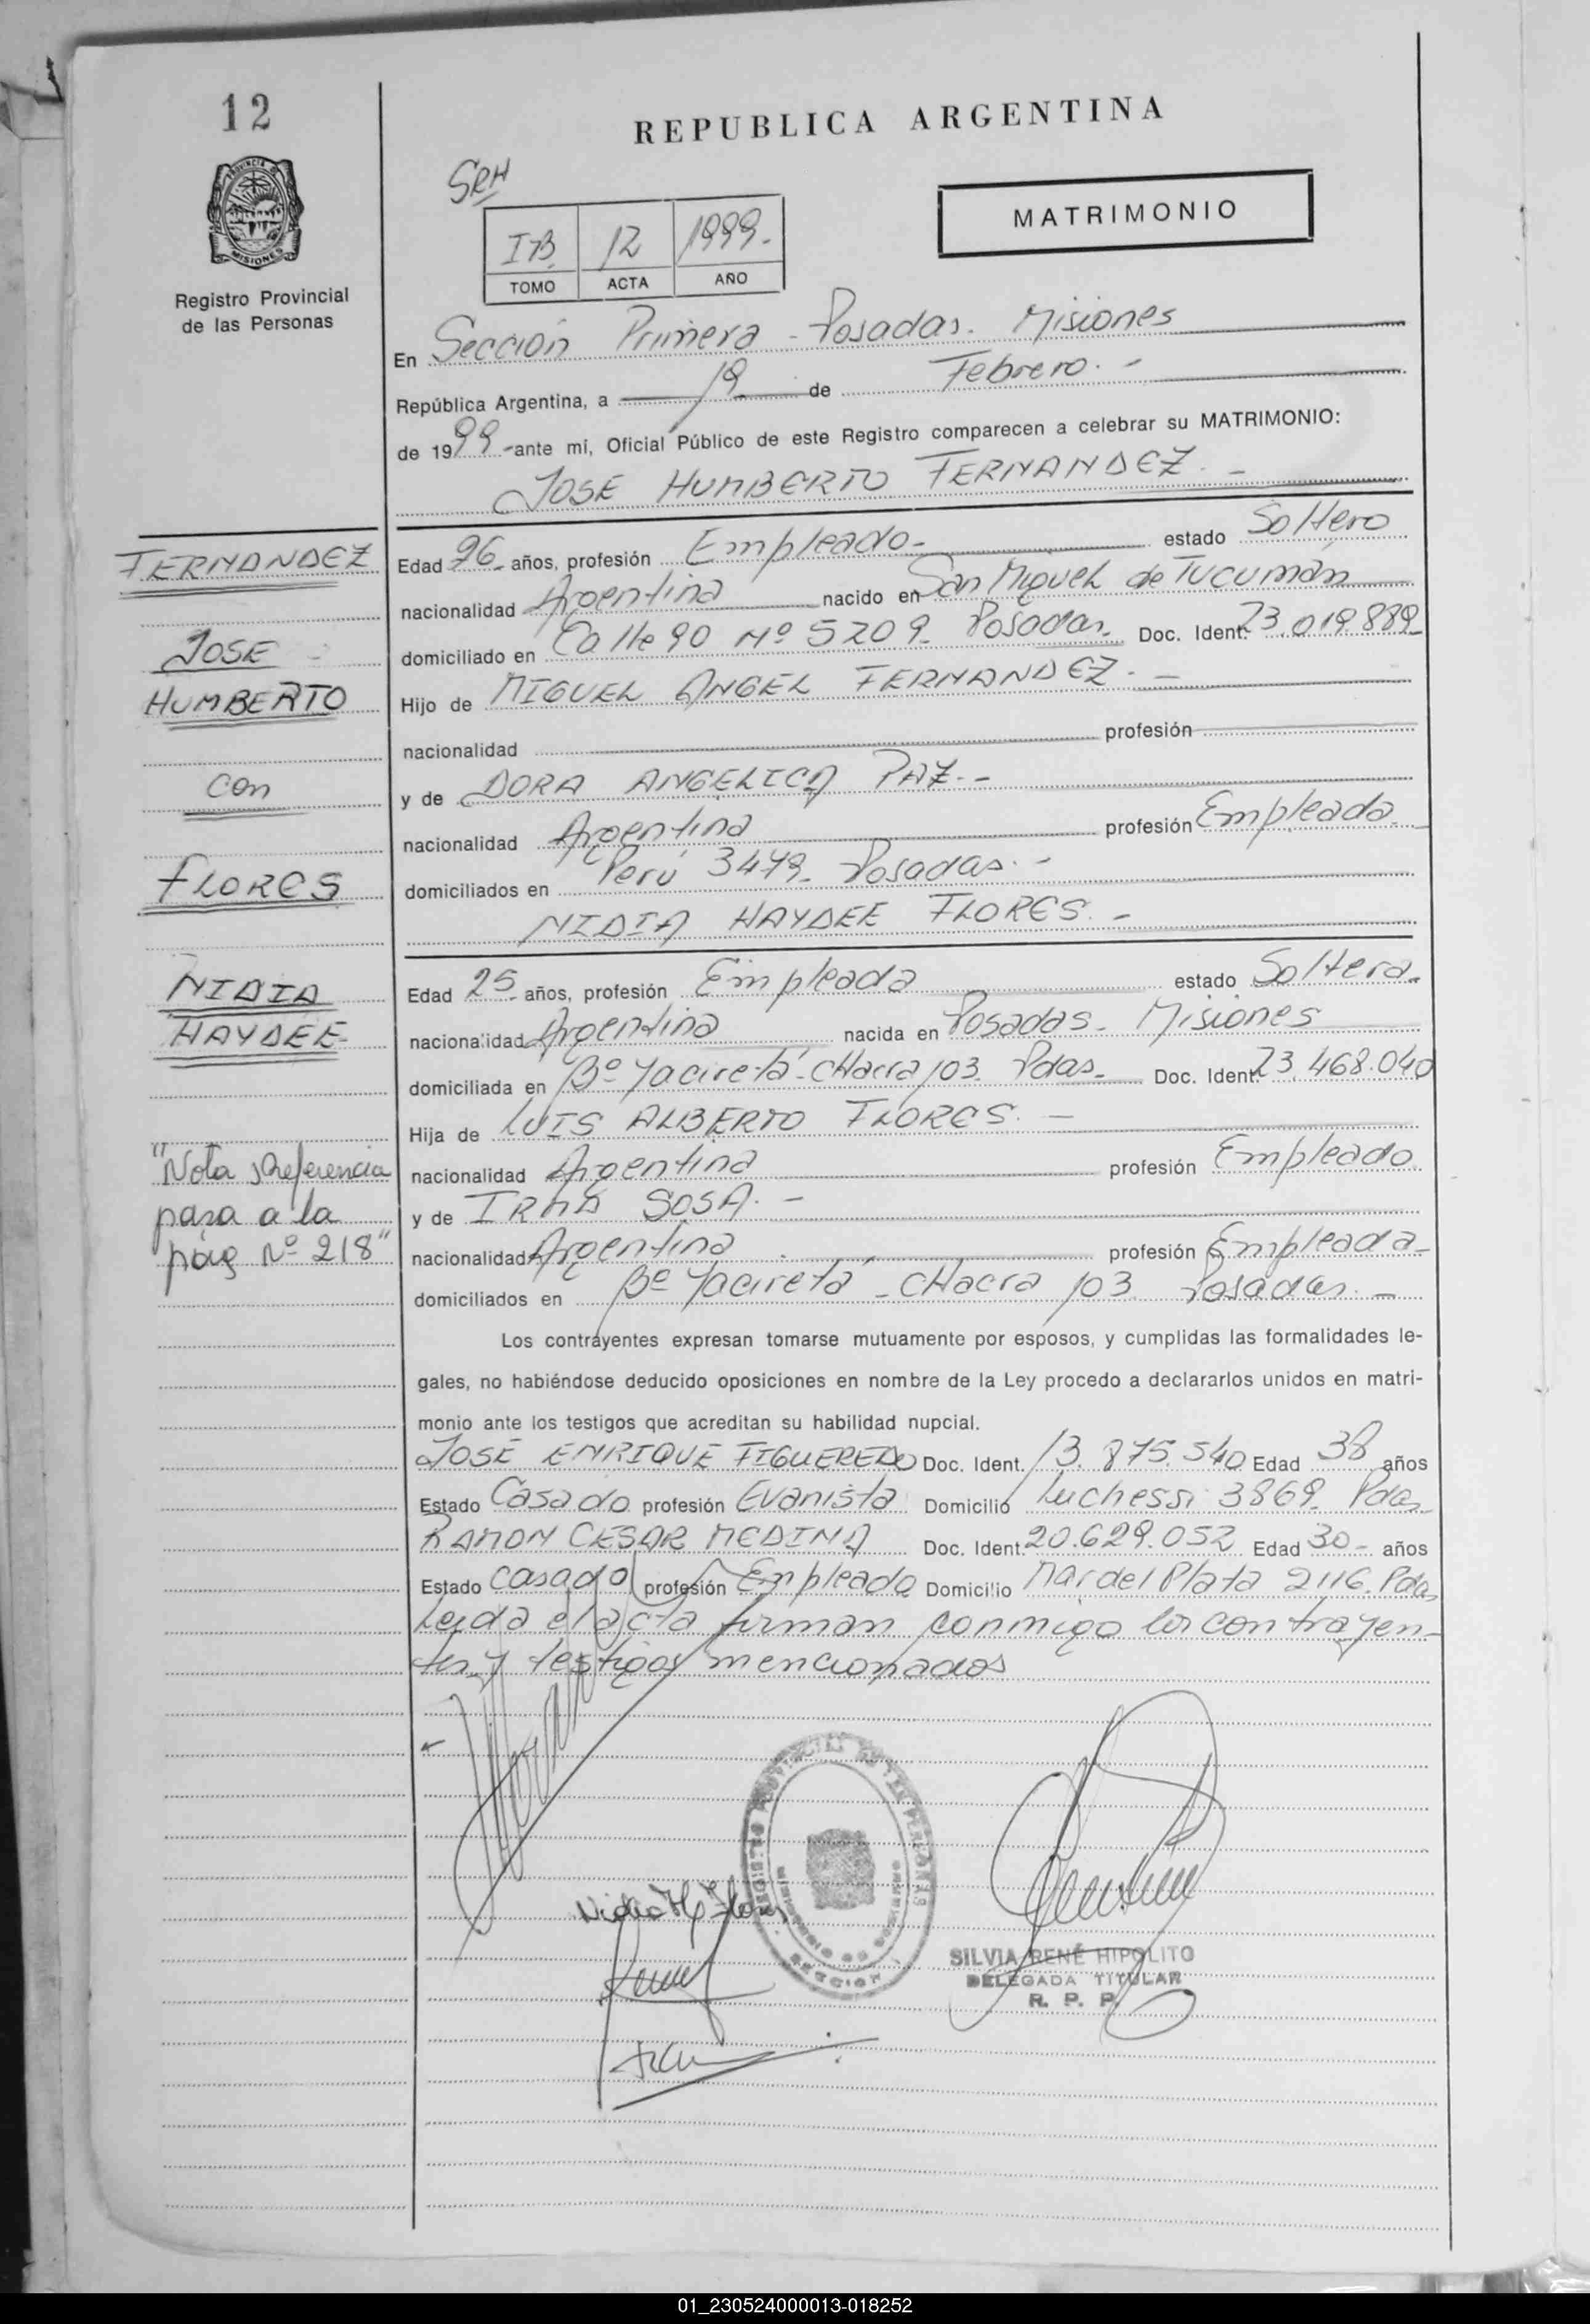 12
REPUBLICA ARGENTINA
SRH
MATRIMONIO
IB 12 1999.-
TOMO ACTA AÑO
PROVINCIA DE MISIONES
Registro Provincial
de las Personas
En Sección Primera - Posadas. Misiones
República Argentina, a 19 de Febrero. -
de 1999 - ante mí, Oficial Público de este Registro comparecen a celebrar su MATRIMONIO:
JOSE HUMBERTO FERNANDEZ. -
FERNANDEZ
JOSE
HUMBERTO
con
FLORES
NIDIA
HAYDEE
"Nota Referencia
pasa a la
pág Nº 218"
Edad 26 años, profesión Empleado- estado Soltero
nacionalidad Argentina nacido en San Miguel de Tucumán
domiciliado en Calle 90 Nº 5209- Posadas. Doc. Ident: 23.019.889
Hijo de MIGUEL ANGEL FERNANDEZ. -
nacionalidad profesión
y de DORA ANGELICA PAZ. -
nacionalidad Argentina profesión Empleada
domiciliados en Perú 3479- Posadas. -
NIDIA HAYDEE FLORES. -
Edad 25 años, profesión Empleada estado Soltera.
nacionalidad Argentina nacida en Posadas- Misiones
domiciliada en Bº Yacireta - CHacra 103. Pdas- Doc. Ident: 23.468.040
Hija de LUIS ALBERTO FLORES. -
nacionalidad Argentina profesión Empleado
y de IRMA SOSA. -
nacionalidad Argentina profesión Empleada-
domiciliados en Bº Yacireta - CHacra 103 Posadas. -
Los contrayentes expresan tomarse mutuamente por esposos, y cumplidas las formalidades le-
gales, no habiéndose deducido oposiciones en nombre de la Ley procedo a declararlos unidos en matri-
monio ante los testigos que acreditan su habilidad nupcial.
JOSE ENRIQUE FIGUEREDO Doc. Ident. 13.875.540 Edad 38 años
Estado Casado profesión Evanista Domicilio Luchessi 3869- Pdas-
RAMON CESAR MEDINA Doc. Ident. 20.629.052 Edad 30- años
Estado Casado profesión Empleado Domicilio Mar del Plata 2116. Pdas
Leida el acta firman conmigo los contrayen-
tes y testigos mencionados
Nidia H. Flores
REGISTRO PROVINCIAL DE LAS PERSONAS
SECCION
SILVIA RENÉ HIPOLITO
DELEGADA TITULAR
R. P. P.
01_230524000013-018252